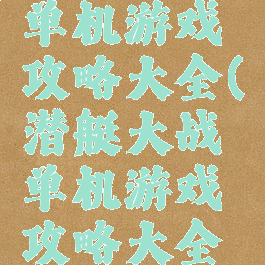 单机游戏
攻略大全(
潜艇大战
单机游戏
攻略大全